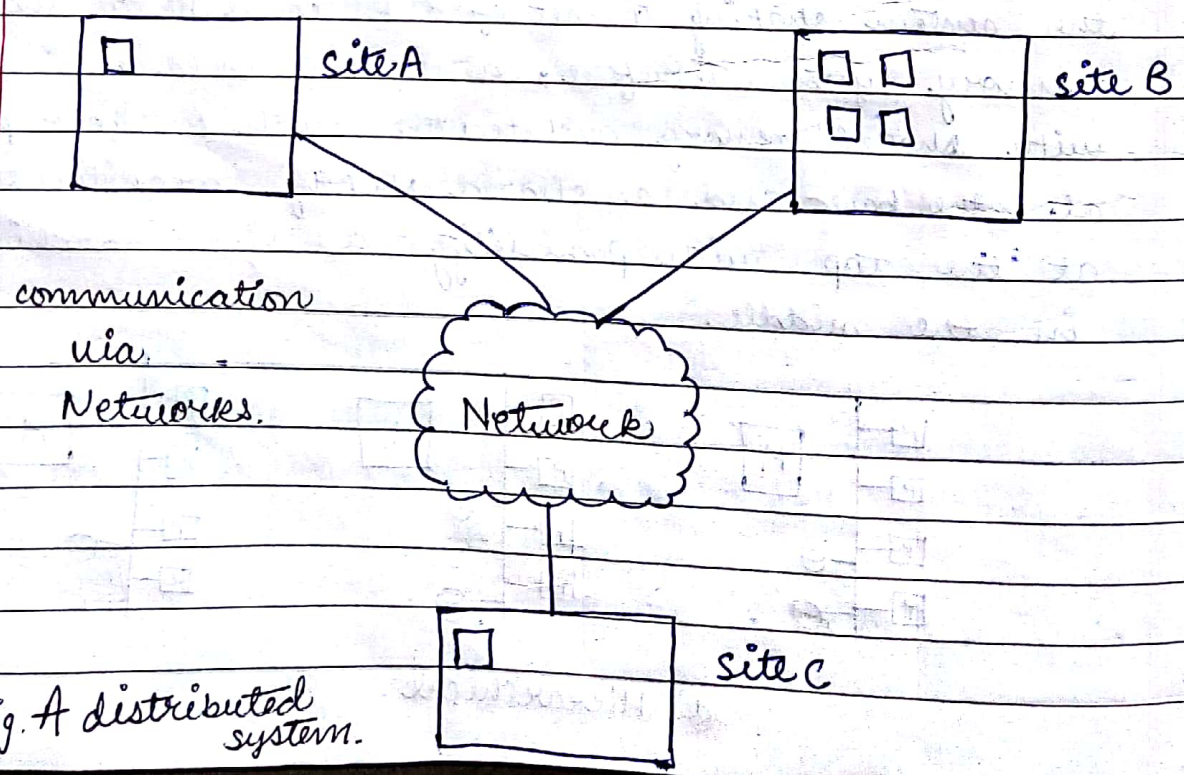 site A
site B
communication
via
Networks.
Network
site C
g. A distributed
system.